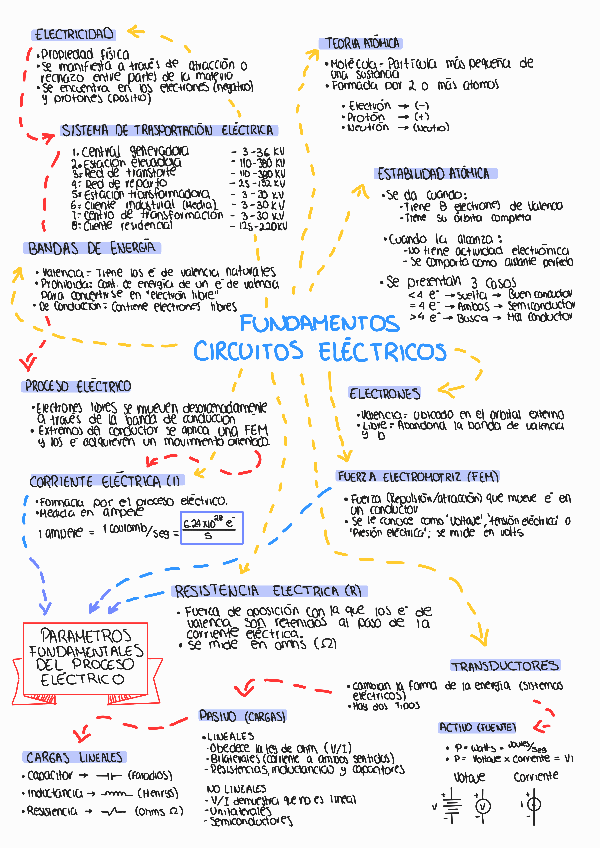 ELECTRICIDAD
• Propiedad física
• Se manifiesta a través de atracción o
rechazo entre partes de la materia
• Se encuentra en los electrones (negativo)
y protones (positivo)
SISTEMA DE TRASPORTACIÓN ELÉCTRICA
1. Central generadora - 3-36 KV
2. Estación elevadora - 110-380 KV
3. Red de transporte - 110-380 KV
4. Red de reparto - 25-132 KV
5. Estación transformadora - 3-30 KV
6. Cliente industrial (Media) - 3-30 KV
7. Centro de transformación - 3-30 KV
8. Cliente residencial - 125-220 KV
BANDAS DE ENERGÍA
• Valencia = Tiene los e⁻ de valencia naturales
• Prohibida = Cant. de energía de un e⁻ de valencia
para convertirse en "electrón libre"
• De Conducción = Contiene electrones libres
TEORIA ATÓMICA
• Molécula = Partícula más pequeña de
una sustancia
• Formada por 2 o más átomos
• Electrón → (-)
• Protón → (+)
• Neutrón → (Neutro)
ESTABILIDAD ATÓMICA
• Se da cuando:
- Tiene 8 electrones de valencia
- Tiene su órbita completa
• Cuando la alcanza:
- No tiene actividad electrónica
- Se comporta como aislante perfecto
• Se presentan 3 casos
<4 e⁻ → Suelta → Buen conductor
=4 e⁻ → Ambos → Semiconductor
>4 e⁻ → Busca → Mal conductor
FUNDAMENTOS
CIRCUITOS ELÉCTRICOS
PROCESO ELÉCTRICO
• Electrones libres se mueven desordenadamente
a través de la banda de conducción
• Extremos del conductor se aplica una FEM
y los e⁻ adquieren un movimiento orientado
ELECTRONES
• Valencia = ubicado en el orbital externo
• Libre = Abandona la banda de valencia
y b
CORRIENTE ELÉCTRICA (I)
• Formada por el proceso eléctrico.
• Medida en ampere
1 ampere = 1 coulomb/seg = 6.24 x10¹⁸ e⁻
S
FUERZA ELECTROMOTRIZ (FEM)
• Fuerza (Repulsión/atracción) que mueve e⁻ en
un conductor
• Se le conoce como 'Voltaje', 'tensión eléctrica' o
'Presión eléctrica'; se mide en volts
RESISTENCIA ELECTRICA (R)
• Fuerza de oposición con la que los e⁻ de
valencia son retenidos al paso de la
corriente eléctrica.
• Se mide en ohms (Ω)
PARAMETROS
FUNDAMENTALES
DEL PROCESO
ELÉCTRICO
TRANSDUCTORES
• Cambian la forma de la energía (sistemas
eléctricos)
• Hay dos tipos
PASIVO (CARGAS)
• LINEALES
- Obedece la ley de ohm (V/I)
- Bilaterales (corriente a ambos sentidos)
- Resistencias, inductancias y capacitores
NO LINEALES
- V/I demuestra que no es lineal
- Unilaterales
- Semiconductores
ACTIVO (FUENTE)
• P = Watts = Joules/seg
• P = Voltaje x corriente = VI
Voltaje Corriente
+ + +
V V I
- - -
CARGAS LINEALES
• Capacitor → (Faradios)
• Inductancia → (Henrios)
• Resistencia → (Ohms Ω)